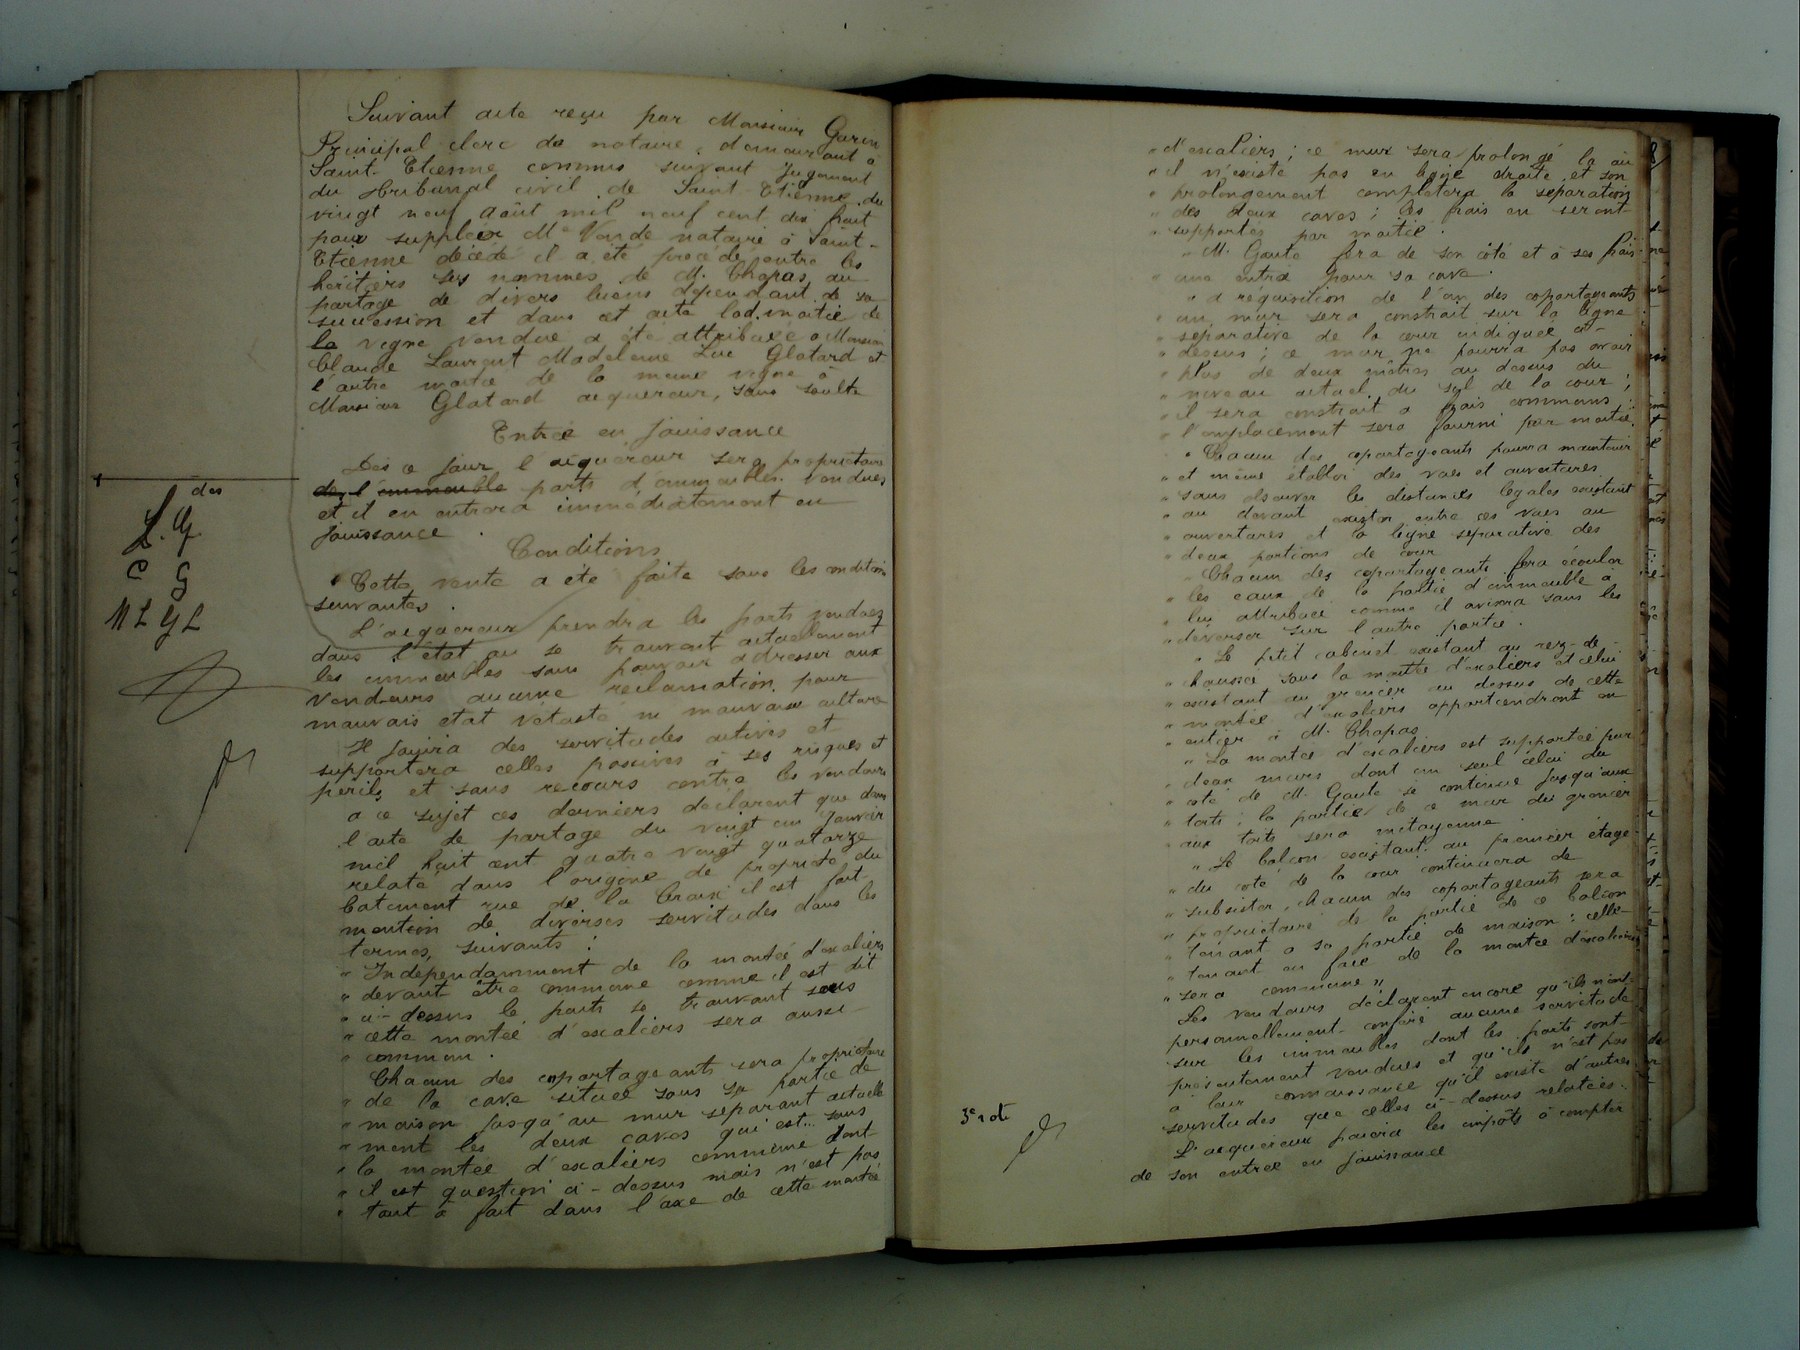 Suivant acte reçu par Monsieur Garin
Principal clerc de notaire, demeurant à
Saint-Etienne commis suivant jugement
du tribunal civil de Saint-Etienne du
vingt neuf août mil neuf cent dix huit
pour suppléer Me Vende notaire à Saint-
Etienne décédé il a été procédé entre les
héritiers sus nommés de M. Chapas au
partage de divers biens dépendant de sa
succession et dans cet acte lad. moitié de
la vigne vendue a été attribuée à Monsieur
Claude Laurent Madeleine Luc Glatard et
l'autre moitié de la même vigne à
Monsieur Glatard acquéreur, sans soulte
Entrée en Jouissance
Dès ce jour l'acquéreur sera propriétaire
de l'immeuble parts d'immeubles vendues
et il en entrera immédiatement en
jouissance.
Conditions
Cette vente a été faite sous les conditions
suivantes.
L'acquéreur prendra les parts vendues
dans l'état où se trouvent actuellement
les immeubles sans pouvoir adresser aux
vendeurs aucune réclamation pour
mauvais état vétusté ni mauvaise culture
Il jouira des servitudes actives et
supportera celles passives à ses risques et
périls et sans recours contre les vendeurs
à ce sujet ces derniers déclarent que dans
l'acte de partage du vingt un janvier
mil huit cent quatre vingt quatorze
relaté dans l'origine de propriété du
batiment rue de la Croix il est fait
mention de diverses servitudes dans les
termes suivants :
" Indépendamment de la montée d'escaliers
" devant être commune comme il est dit
" ci-dessus le puits se trouvant sous
" cette montée d'escaliers sera aussi
" commun.
Chacun des copartageants sera propriétaire
" de la cave située sous sa partie de
" maison jusqu'au mur séparant actuelle
" ment les deux caves qui est sous
" la montée d'escaliers commune dont
" il est question ci-dessus mais n'est pas
" tout à fait dans l'axe de cette montée
des
L. G.
C G
M L G L
" d'escaliers ; ce mur sera prolongé là où
" il n'existe pas en ligne droite et son
" prolongement complètera la séparation
" des deux caves ; les frais en seront
" supportés par moitié.
" M. Gaute fera de son côté et à ses frais
" une entrée pour sa cave.
" à réquisition de l'un des copartageants
" un mur sera construit sur la ligne
" séparative de la cour indiquée ci-
" dessus ; ce mur ne pourra pas avoir
" plus de deux mètres au dessus du
" niveau actuel du sol de la cour ;
" il sera construit à frais communs ;
" l'emplacement sera fourni par moitié.
" Chacun des copartageants pourra maintenir
" et même établir des vues et ouvertures
" sans observer les distances légales existant
" ou devant exister entre ces vues ou
" ouvertures et la ligne séparative des
" deux portions de cour
" Chacun des copartageants fera écouler
" les eaux de la partie d'immeuble à
" lui attribuée comme il avisera sans les
" déverser sur l'autre partie.
" Le petit cabinet existant au rez-de-
" chaussée sous la montée d'escaliers et celui
" existant au grenier au dessus de cette
" montée d'escaliers appartiendront en
" entier à M. Chapas
" La montée d'escaliers est supportée par
" deux murs dont un seul celui du
" côté de M. Gaute se continue jusqu'aux
" toits ; la partie de ce mur du grenier
" aux toits sera mitoyenne
" Le balcon existant au premier étage
" du côté de la cour continuera de
" subsister, chacun des copartageants sera
" propriétaire de la partie de ce balcon
" tenant à sa partie de maison : celle
" tenant en face de la montée d'escaliers
" sera commune "
Les vendeurs déclarent encore qu'ils n'ont
personnellement conféré aucune servitude
sur les immeubles dont les parts sont
présentement vendues et qu'il n'est pas
à leur connaissance qu'il existe d'autres
servitudes que celles ci-dessus relatées.
L'acquéreur paiera les impôts à compter
de son entrée en jouissance
3e rôle